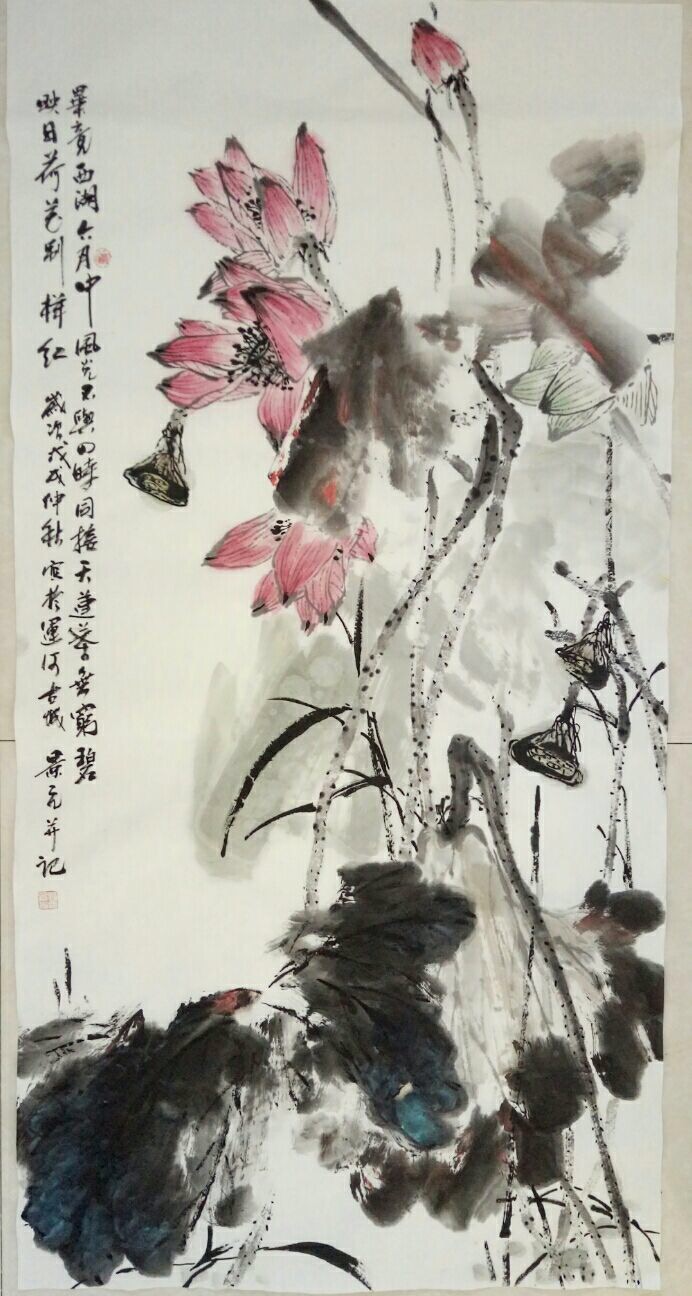 畢竟西湖六月中風光不與四時同接天蓮葉無窮碧
映日荷花别樣紅 歲次戊戌仲秋寫於運河古城 景元并記